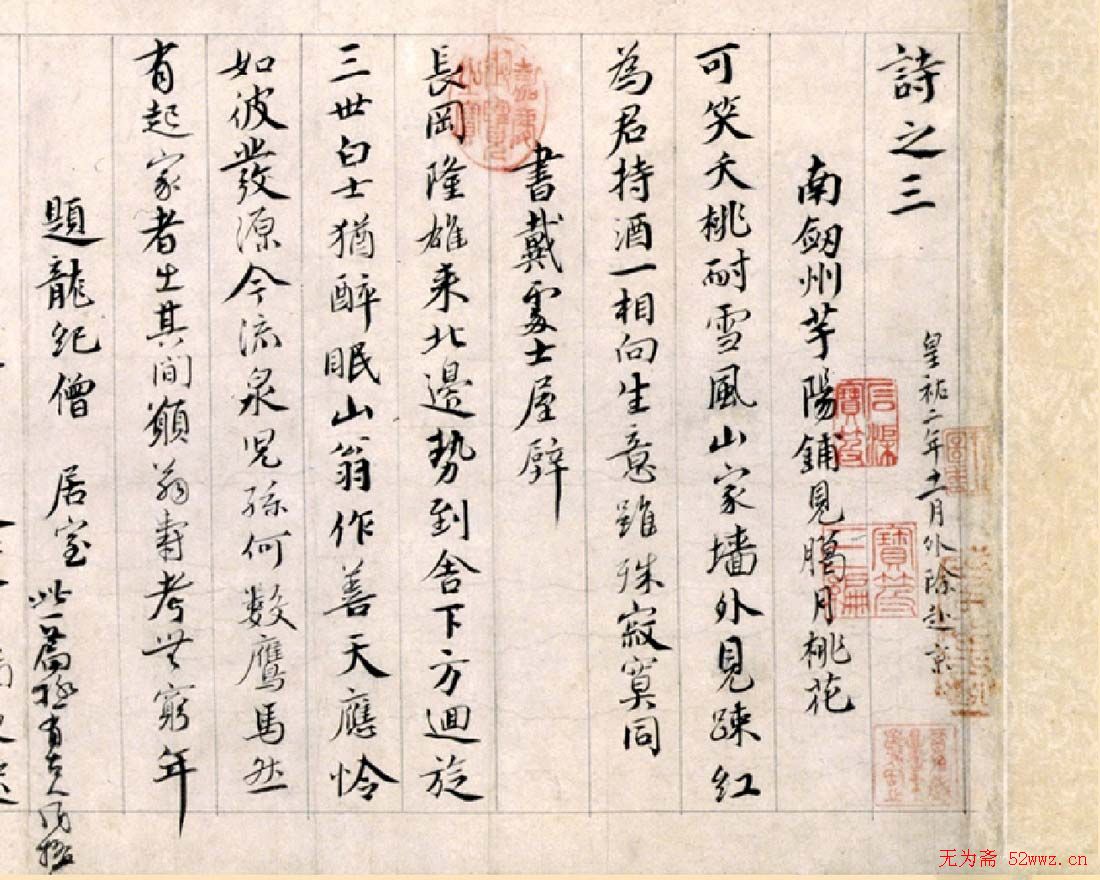 詩之三
皇祐二年十一月外除赴京
南劔州芋陽鋪見臘月桃花
可笑夭桃耐雪風山家墻外見踈紅
為君持酒一相向生意雖殊寂寞同
書戴處士屋壁
長岡隆雄来北邉勢到舍下方迴旋
三世白士猶醉眠山翁作善天應怜
如彼發源今流泉児孫何數鷹馬然
有起家者出其間願翁壽考無窮年
題龍紀僧居室
此一篇極有古人風格
无为斋 52wwz.cn